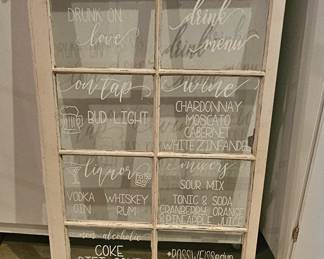 DRUNK ON
love
drink
menu
on tap
BUD LIGHT
wine
CHARDONNAY
MOSCATO
CABERNET
WHITE ZINFANDEL
liquor
VODKA WHISKEY
GIN RUM
mixers
SOUR MIX
TONIC & SODA
CRANBERRY ORANGE
& PINEAPPLE JUICE
non alcoholic
COKE
DIET COKE